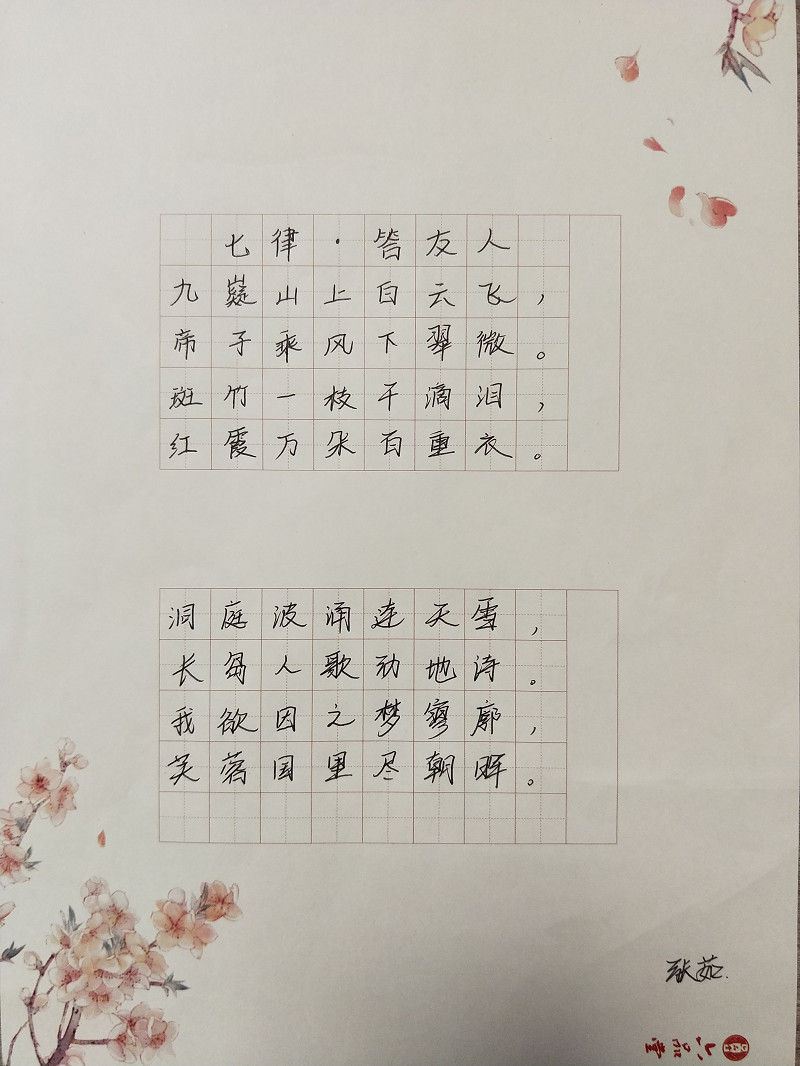 七律·答友人
九嶷山上白云飞，
帝子乘风下翠微。
斑竹一枝千滴泪，
红霞万朵百重衣。
洞庭波涌连天雪，
长岛人歌动地诗。
我欲因之梦寥廓，
芙蓉国里尽朝晖。
张茹
六品堂